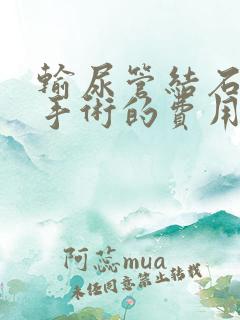 輸尿管結石
手術的費用
阿蕊mua
未经同意禁止转载